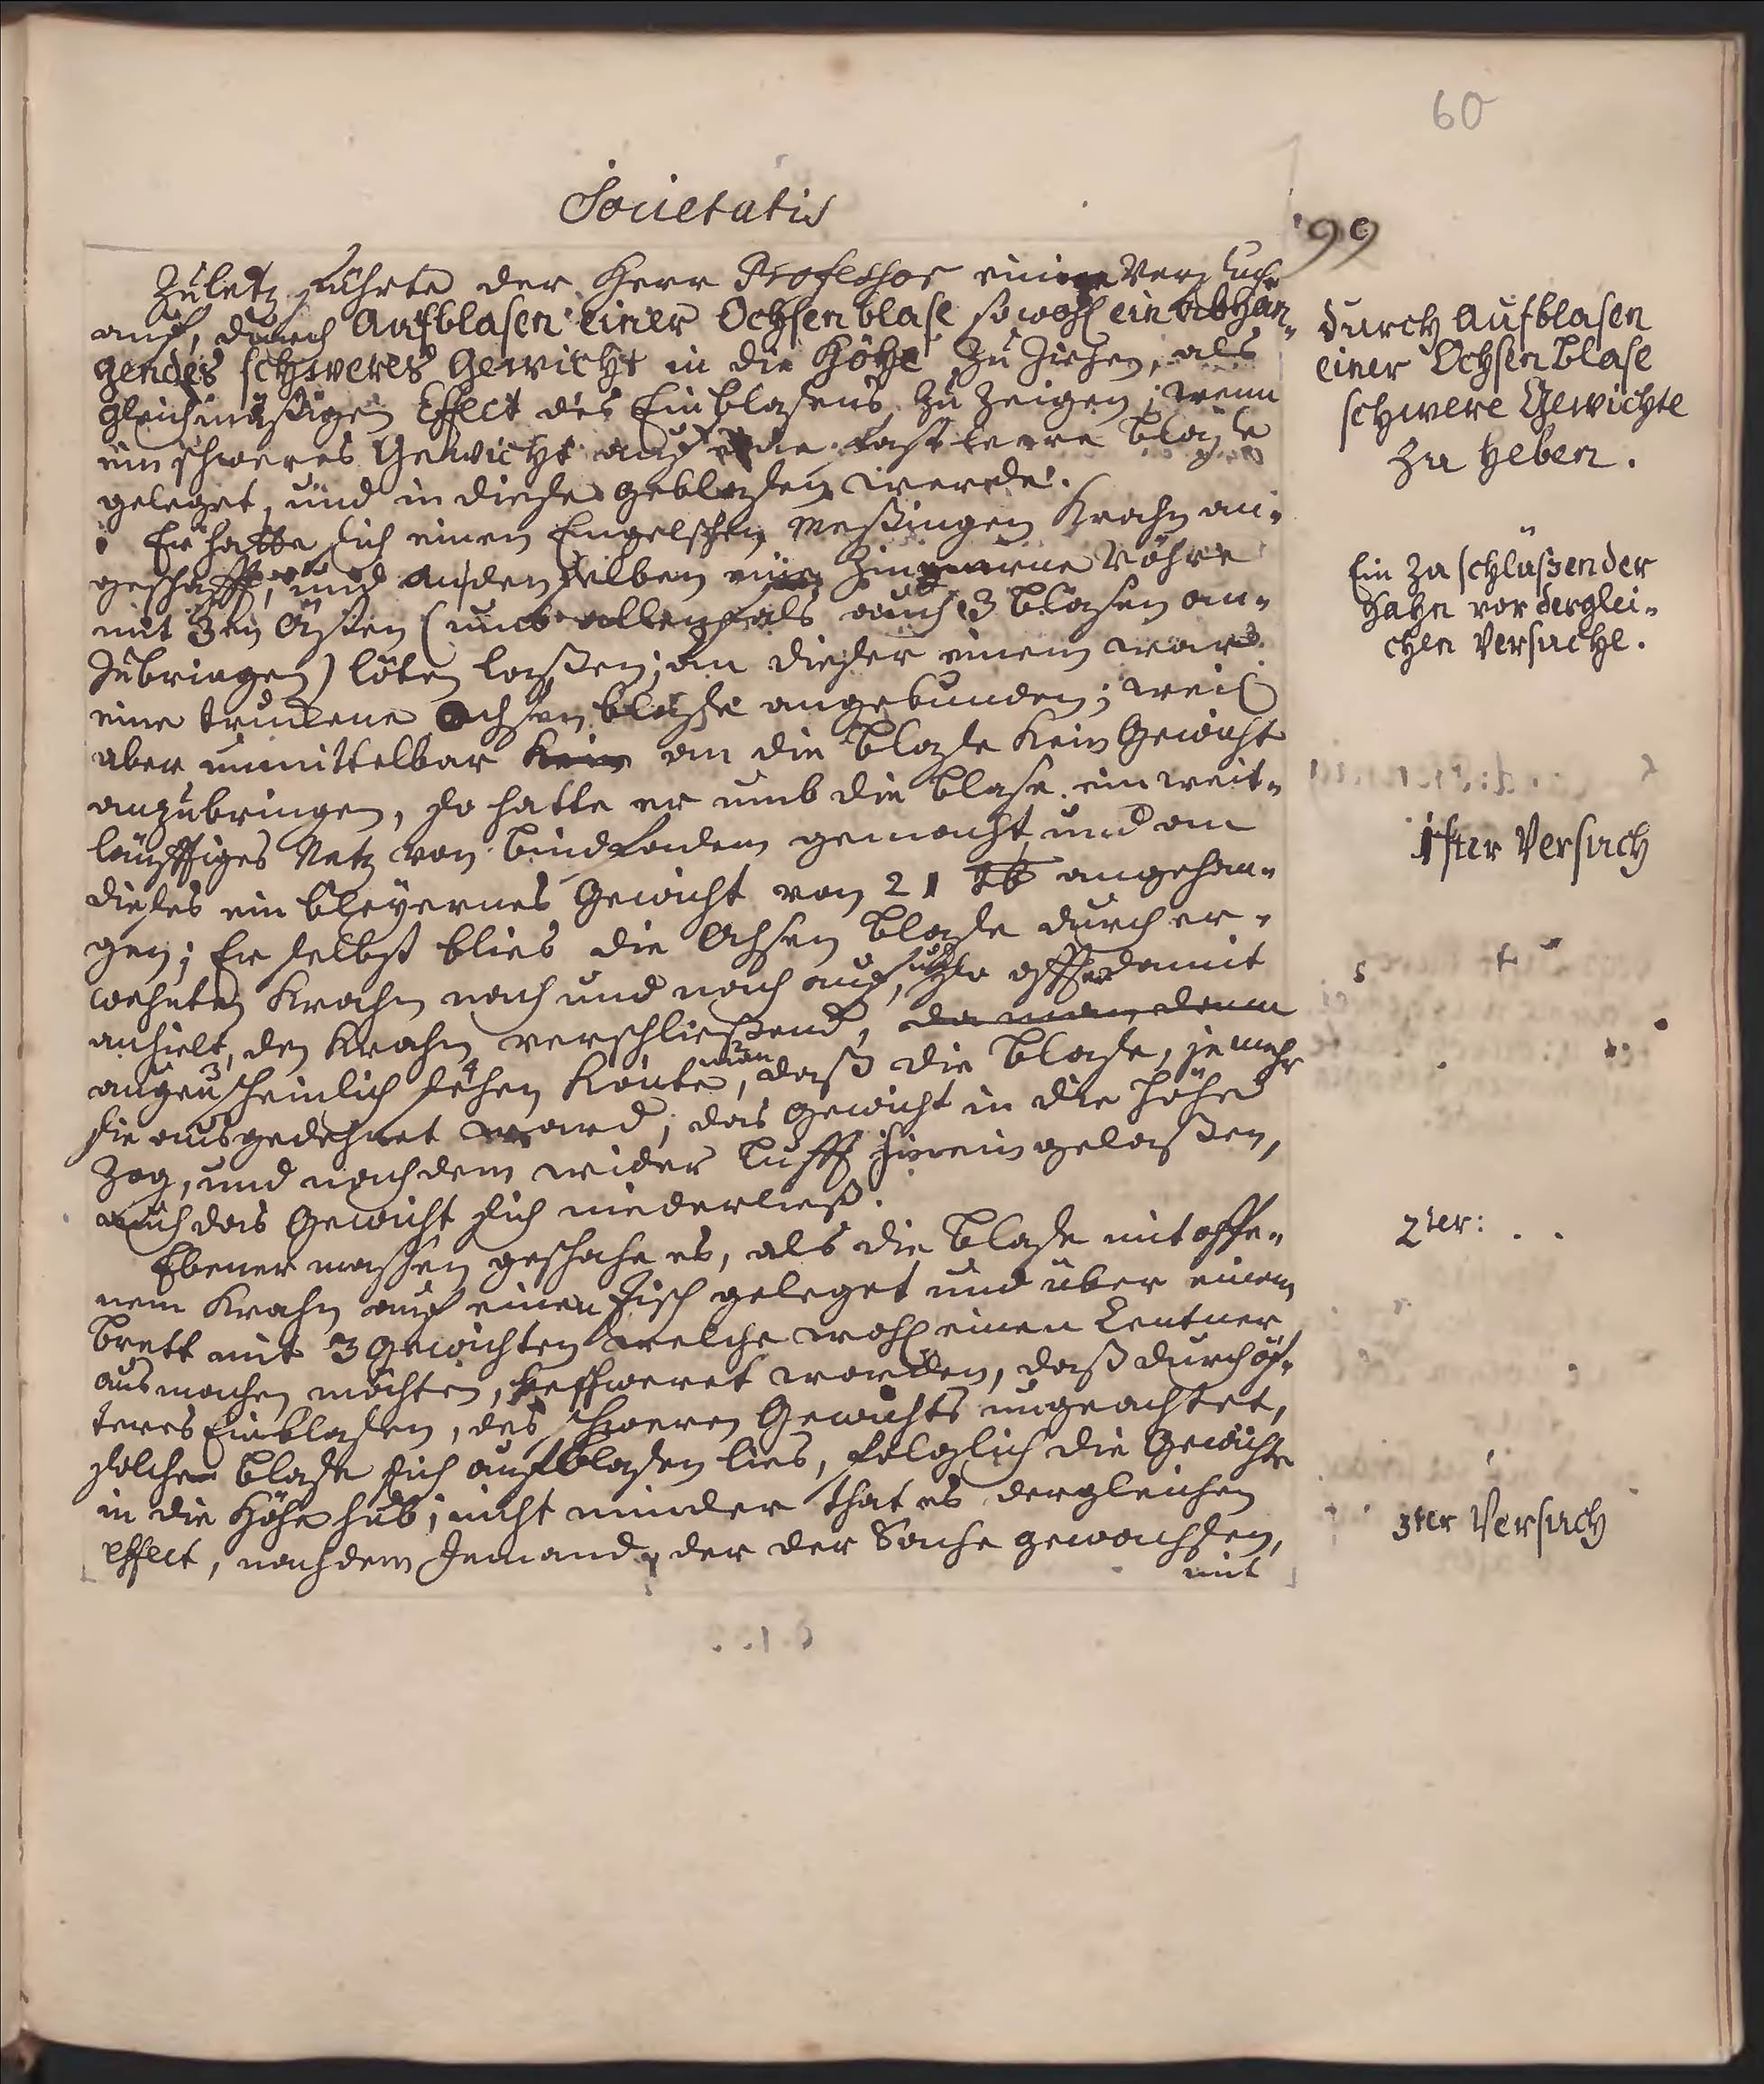 60
Societatis
99
Zuletz führte der Herr Professor einige Versuche
auf, durch Aufblasen einer Ochsenblase sowohl ein abhan-
gendes schweres Gewicht in die Höhe zu ziehen, als
gleichmäßigen Effect des Einblasens zu zeigen; wenn
ein schweres Gewicht auf eine fast leere Blase
geleget, und in dieße geblaßen werde.
Er hatte sich einen Engelschen meßingen Krahn an-
geschafft, und an denselben eine Zinnerne Röhre
mit 3en Ästen (umb allenfals auch 3 Blasen an-
zubringen) löten laßen; an dießer einem ward
eine truckene Ochsen blaße angebunden; weil
aber unmittelbar kein an die Blaße kein Gewicht
anzubringen, so hatte er umb die Blase ein weit-
läufftiges Netz von Bindfadem gemacht und an
dießes ein bleyernes Gewicht von 21 ℔ angehan-
gen; Er selbst blies die Ochsen Blaße durch er-
wehnten Krahn nach und nach auf, so offt damit
anhielt, den Krahn verschließend, da man denn
augenscheinlich sehen konte man, daß die Blaße, je mehr
sie ausgedehnet ward, das Gewicht in die Höhe
zog, und nachdem wider Lufft hinein gelaßen,
auch das Gewicht sich niederließ.
Ebener maßen geschahe es, als die Blaße mit offe-
nem Krahn auf einen Tisch geleget und über einem
Brett mit 3 Gewichten welche wohl einen Centner
ausmachen möchten, beschweret worden, daß durch öf-
teres Einblaßen, des schweren Gewichts ungeachtet,
solche Blaße sich aufblaßen lies, folglich die Gewichte
in die Höhe hub; nicht minder that es dergleichen
effect, nachdem Jemand, der der Sache gewachßen,
mit
durch Aufblasen
einer Ochsen Blase
schwere Gewichte
zu heben.
Ein zu schlüßender
Hahn vor derglei-
chen Versuche.
1ster Versuch
2ter:
3ter Versuch